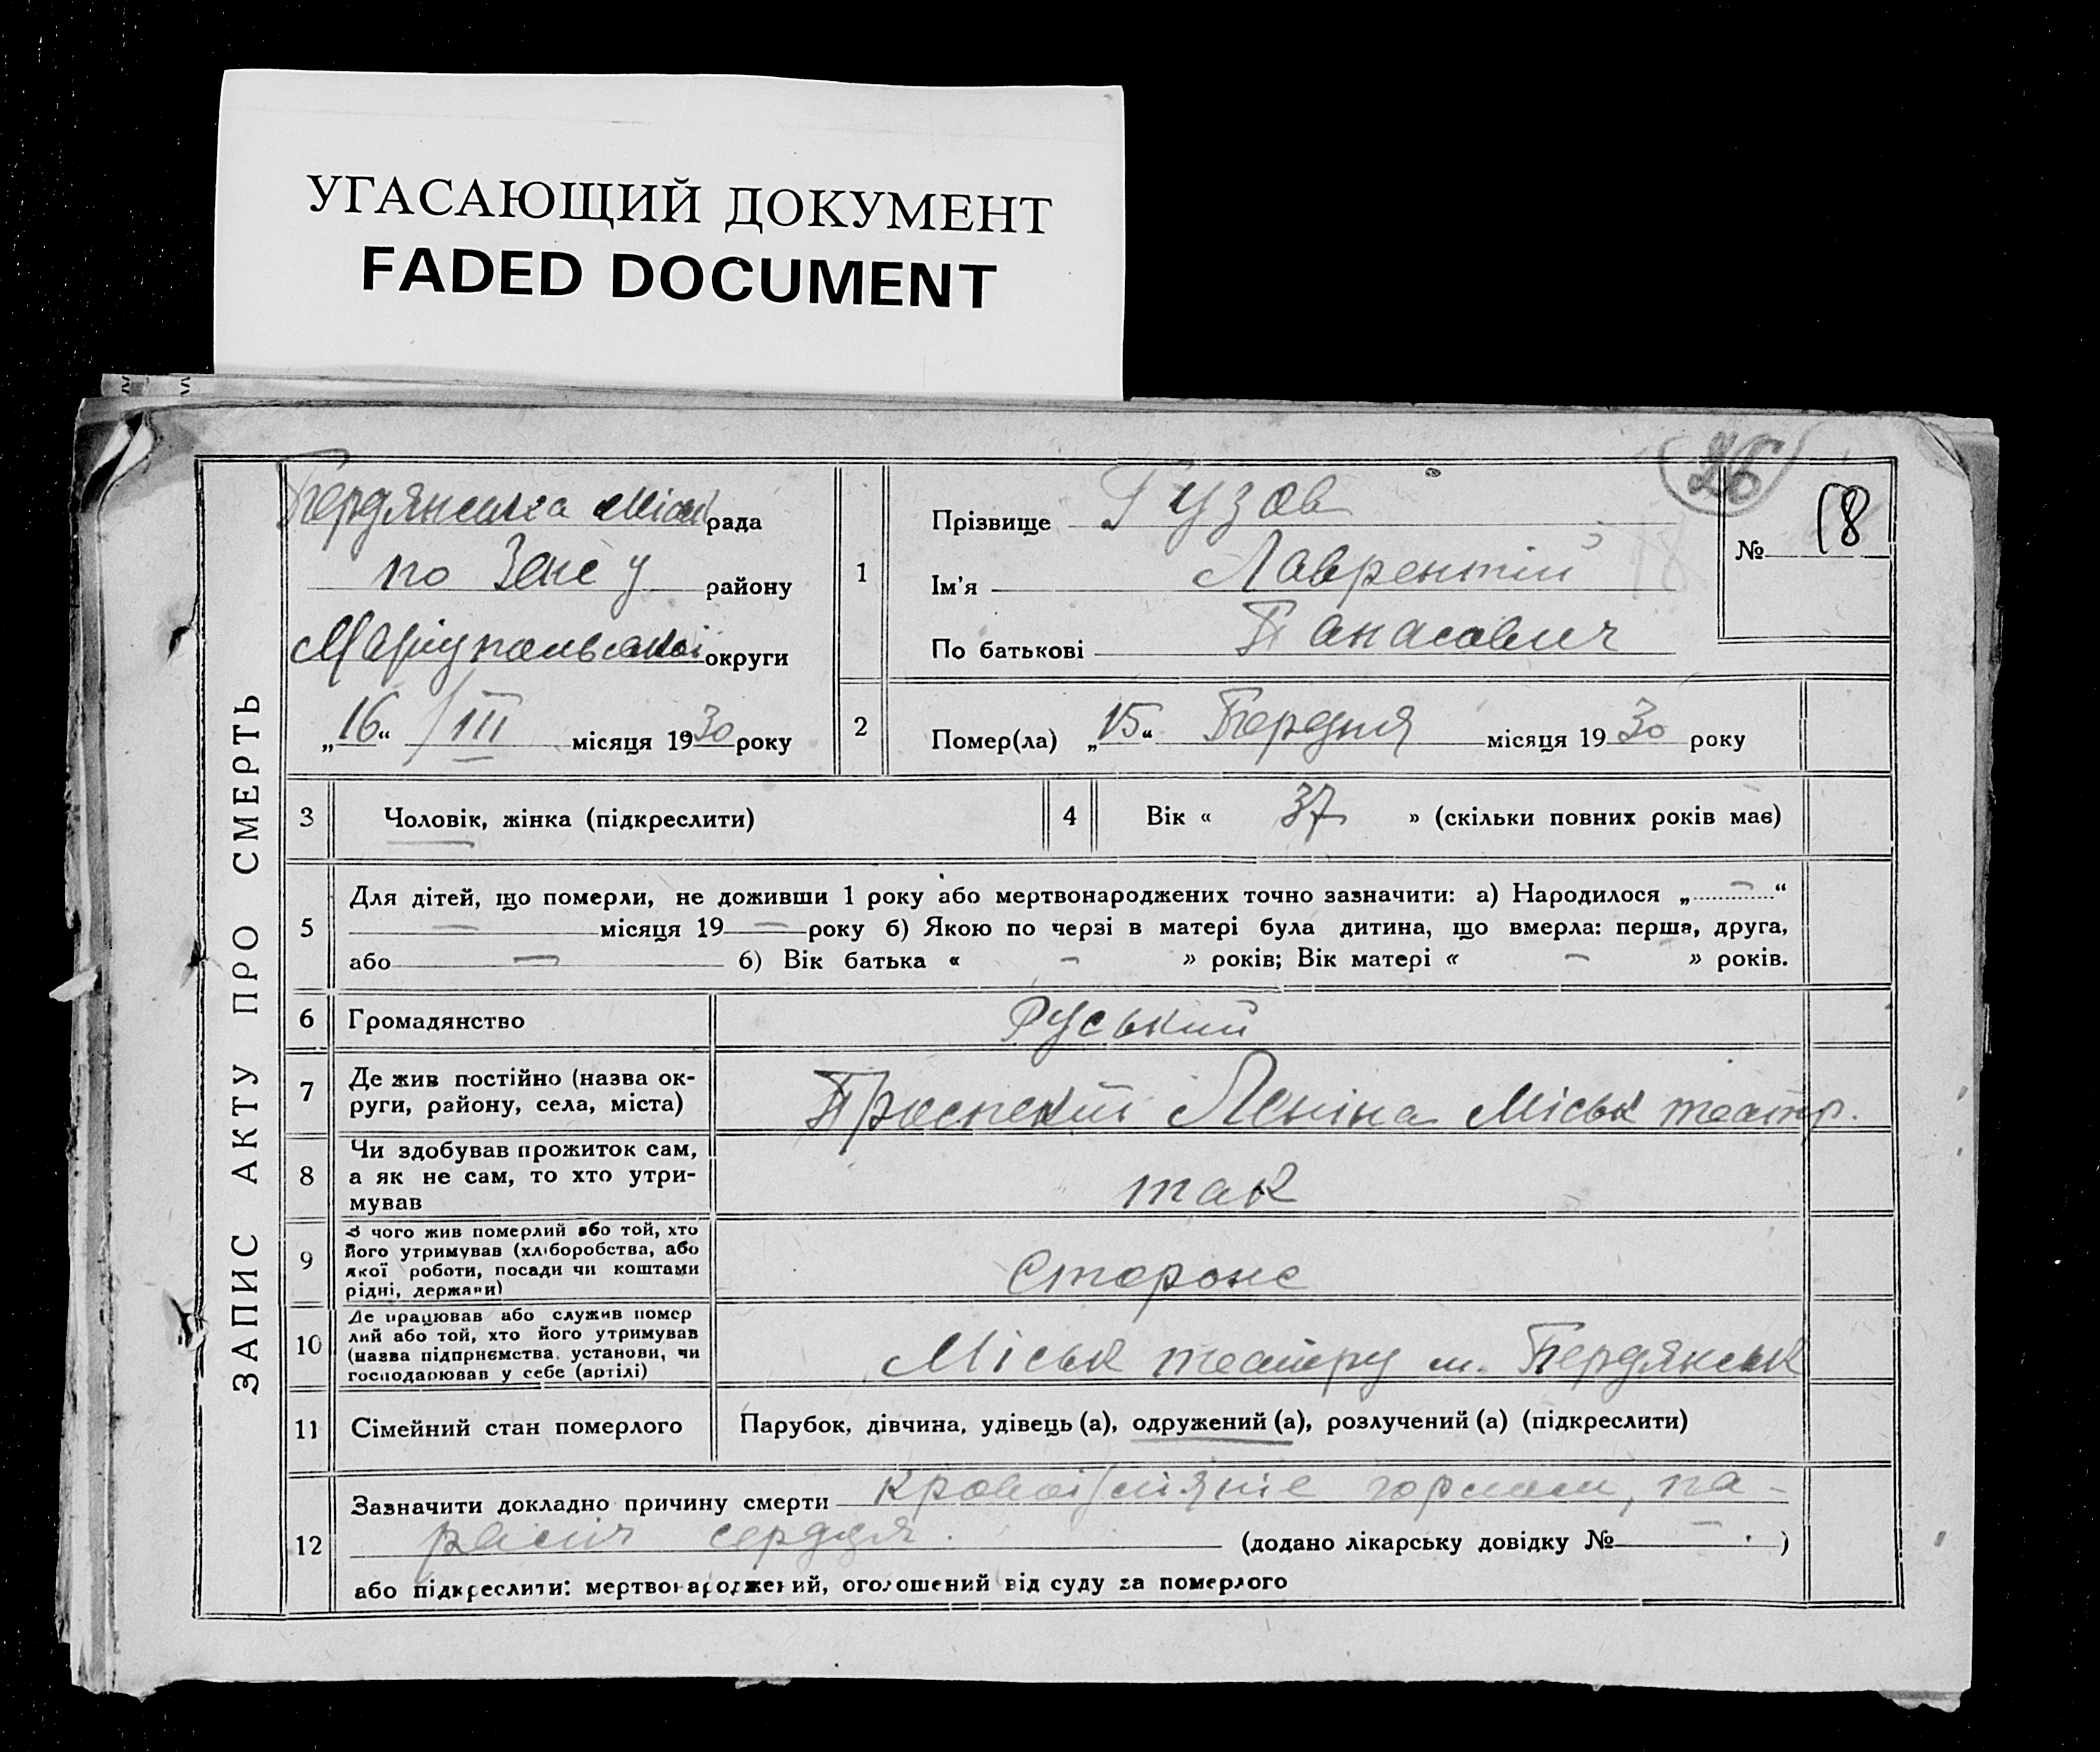 УГАСАЮЩИЙ ДОКУМЕНТ
FADED DOCUMENT
26
ЗАПИС АКТУ ПРО СМЕРТЬ
Бердянська Міськ рада
по Загс у району
Маріупольської округи
„16“ / III місяця 1930 року
1
Прізвище Гузов
Ім'я Лаврентій
По батькові Панасович
№ 18
2
Помер(ла) „15“ Березня місяця 1930 року
3 Чоловік, жінка (підкреслити)
4 Вік « 37 » (скільки повних років має)
5
Для дітей, що померли, не доживши 1 року або мертвонароджених точно зазначити: а) Народилося „ — “
— місяця 19 — року б) Якою по черзі в матері була дитина, що вмерла: перша, друга,
або — б) Вік батька « - » років; Вік матері « - » років.
6 Громадянство Руський
7 Де жив постійно (назва ок-
руги, району, села, міста) Проспекту Леніна Міськ театр.
8 Чи здобував прожиток сам,
а як не сам, то хто утри-
мував так
9 З чого жив померлий або той, хто
його утримував (хліборобства, або
якої роботи, посади чи коштами
рідні, держави) Сторож
10 Де працював або служив помер
лий або той, хто його утримував
(назва підприємства, установи, чи
господарював у себе (артілі) Міськ театру м. Бердянськ
11 Сімейний стан померлого Парубок, дівчина, удівець (а), одружений (а), розлучений (а) (підкреслити)
12 Зазначити докладно причину смерти горлом, па-
раліч сердця. (додано лікарську довідку № — )
або підкреслити: мертвонароджений, оголошений від суду за померлого